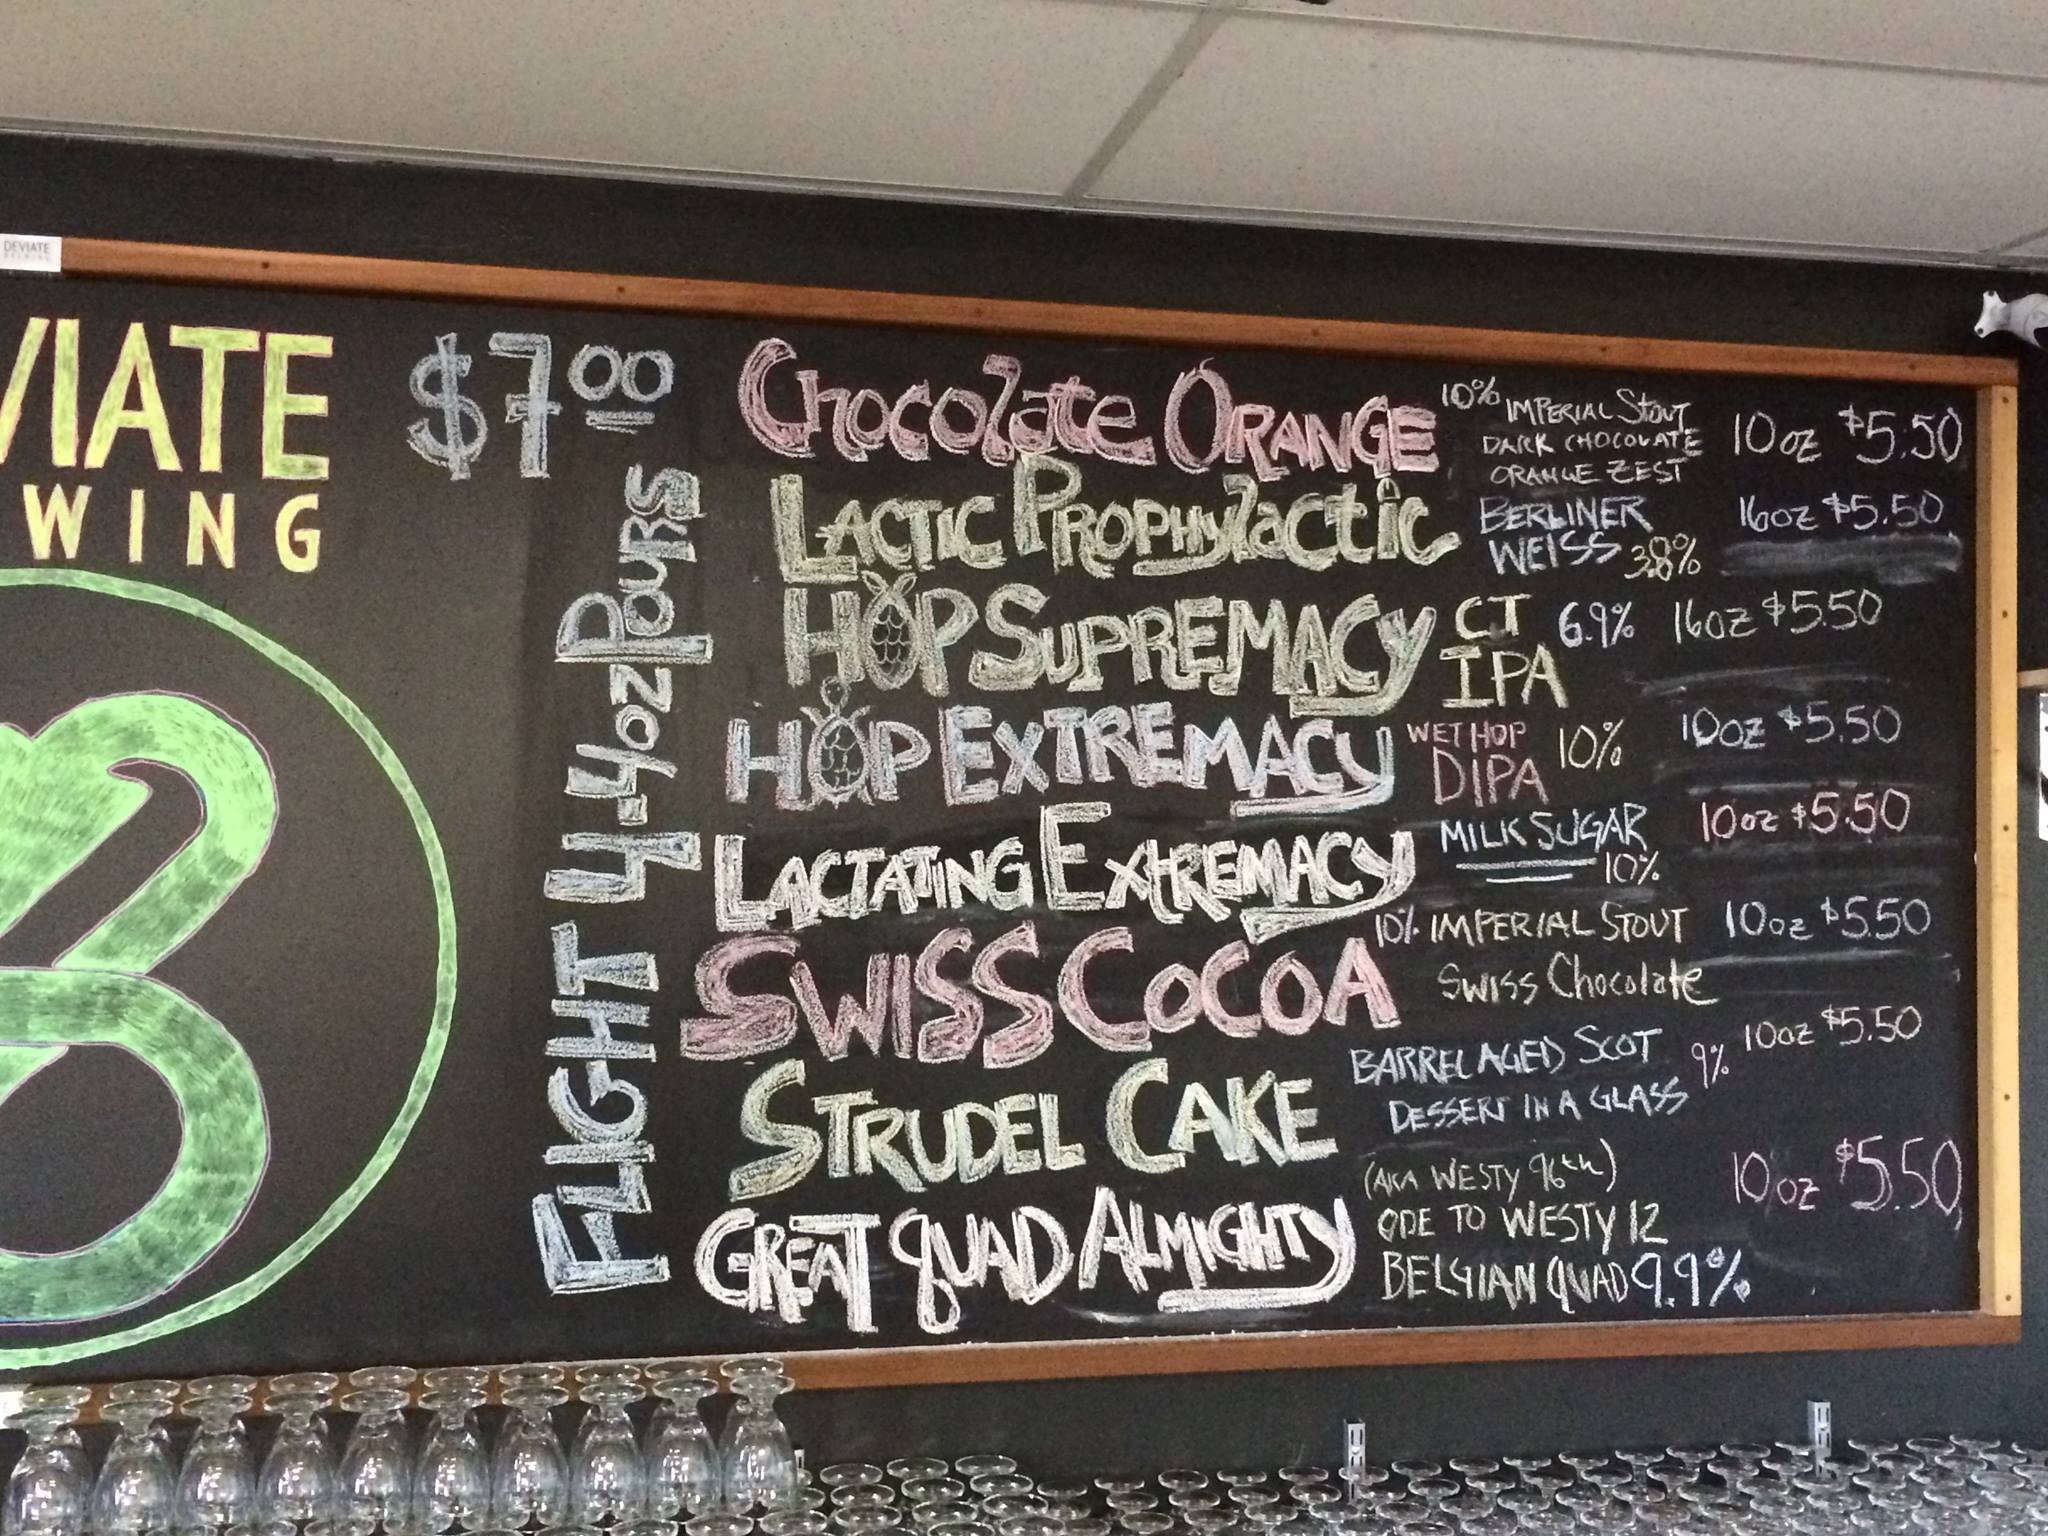 DEVIATE
BREWING
VIATE
WING
$7.00
FLIGHT 4-4oz Pours
Chocolate ORANGE 10% IMPERIAL STOUT 10oz $5.50
DARK CHOCOLATE
ORANGE ZEST
LACTIC PROPHYlactic BERLINER 16oz $5.50
WEISS 3.8%
HOP SUPREMACY CT 6.9% 16oz $5.50
IPA
HOP EXTREMACY WET HOP 10% 10oz $5.50
DIPA
LACTATING EXTREMACY MILK SUGAR 10oz $5.50
10%
SWISS COCOA 10% IMPERIAL STOUT 10oz $5.50
SWISS Chocolate
STRUDEL CAKE BARREL AGED SCOT 9% 10oz $5.50
DESSERT IN A GLASS
GREAT QUAD ALMIGHTY (AKA WESTY 96th) 10oz $5.50
ODE TO WESTY 12
BELGIAN QUAD 9.9%